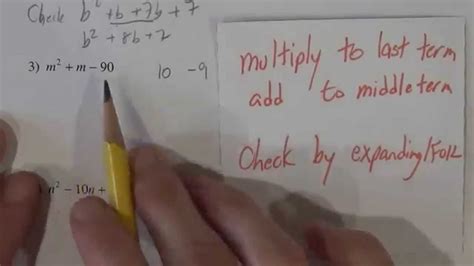 Check b² + b + 7b + 7
b² + 8b + 2
3) m² + m − 90 10 -9
n² − 10n +
multiply to last term
add to middle term
Check by expanding/FOIL